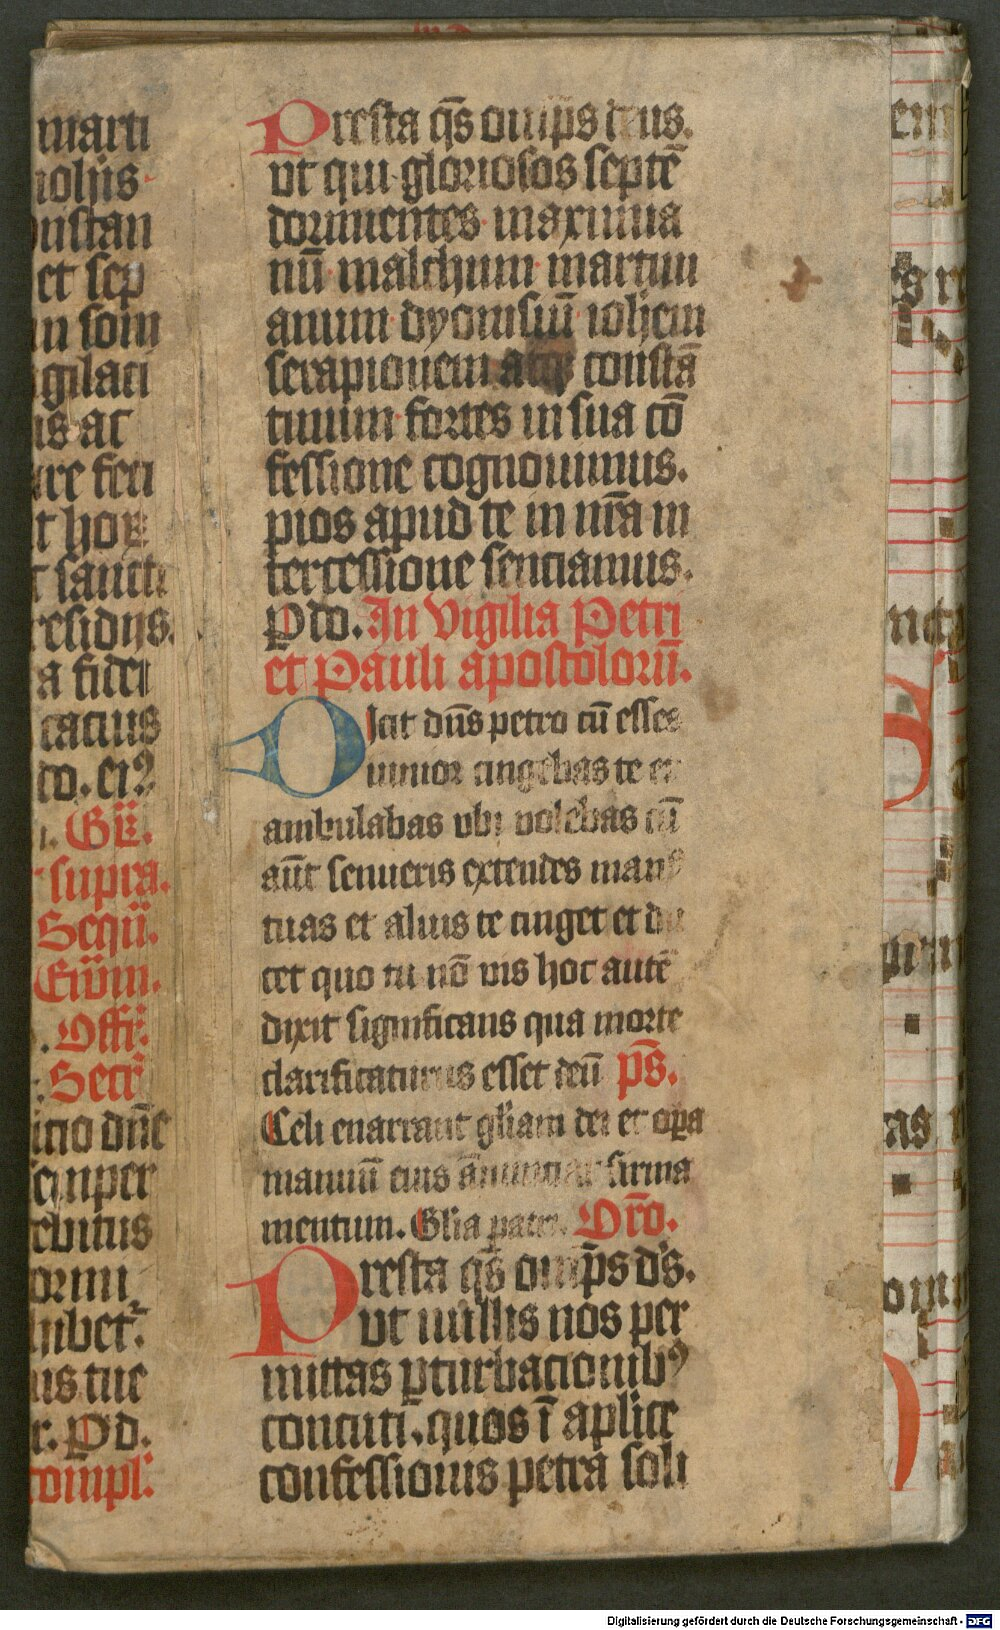 marti
iohis
nstan
et sep
in som
gilaci
is ac
ire feci
t hor
sancti
residijs.
a fidei
tatius
to. ei9
Gr.
supra.
Sequ.
Ewm.
Offr.
Secr
icio dñe
semper
ebitus
ormi
hibet.
us tue
r. Pd.
compl.
Presta q̄s om̄ps deus.
vt qui gloriosos septē
dormientes maximia
nū malchum martini
anum dyonisiū iohem
serapionem atq̄ constā
tinum fortes in sua cō
fessione cognouimus.
pios apud te in nr̄a in
tercessione senciamus.
P do. In vigilia Petri
et Pauli apostolorū.
Dicit dn̄s petro cū esses
iunior cingebas te et
ambulabas vbi volebas cū
aūt senueris extendes man9
tuas et alius te cinget et du
cet quo tu nō vis hoc autē
dixit significans qua morte
clarificaturus esset deū p̄s.
Celi enarrant gl̄iam dei et opa
manuū eius ānunciat firma
mentum. Glia patri. Or̄o.
Presta q̄s om̄ps d's.
vt nullis nos per
mittas pturbacionib9
concuti. quos ī aplice
confessionis petra soli
em
as
Digitalisierung gefördert durch die Deutsche Forschungsgemeinschaft - DFG